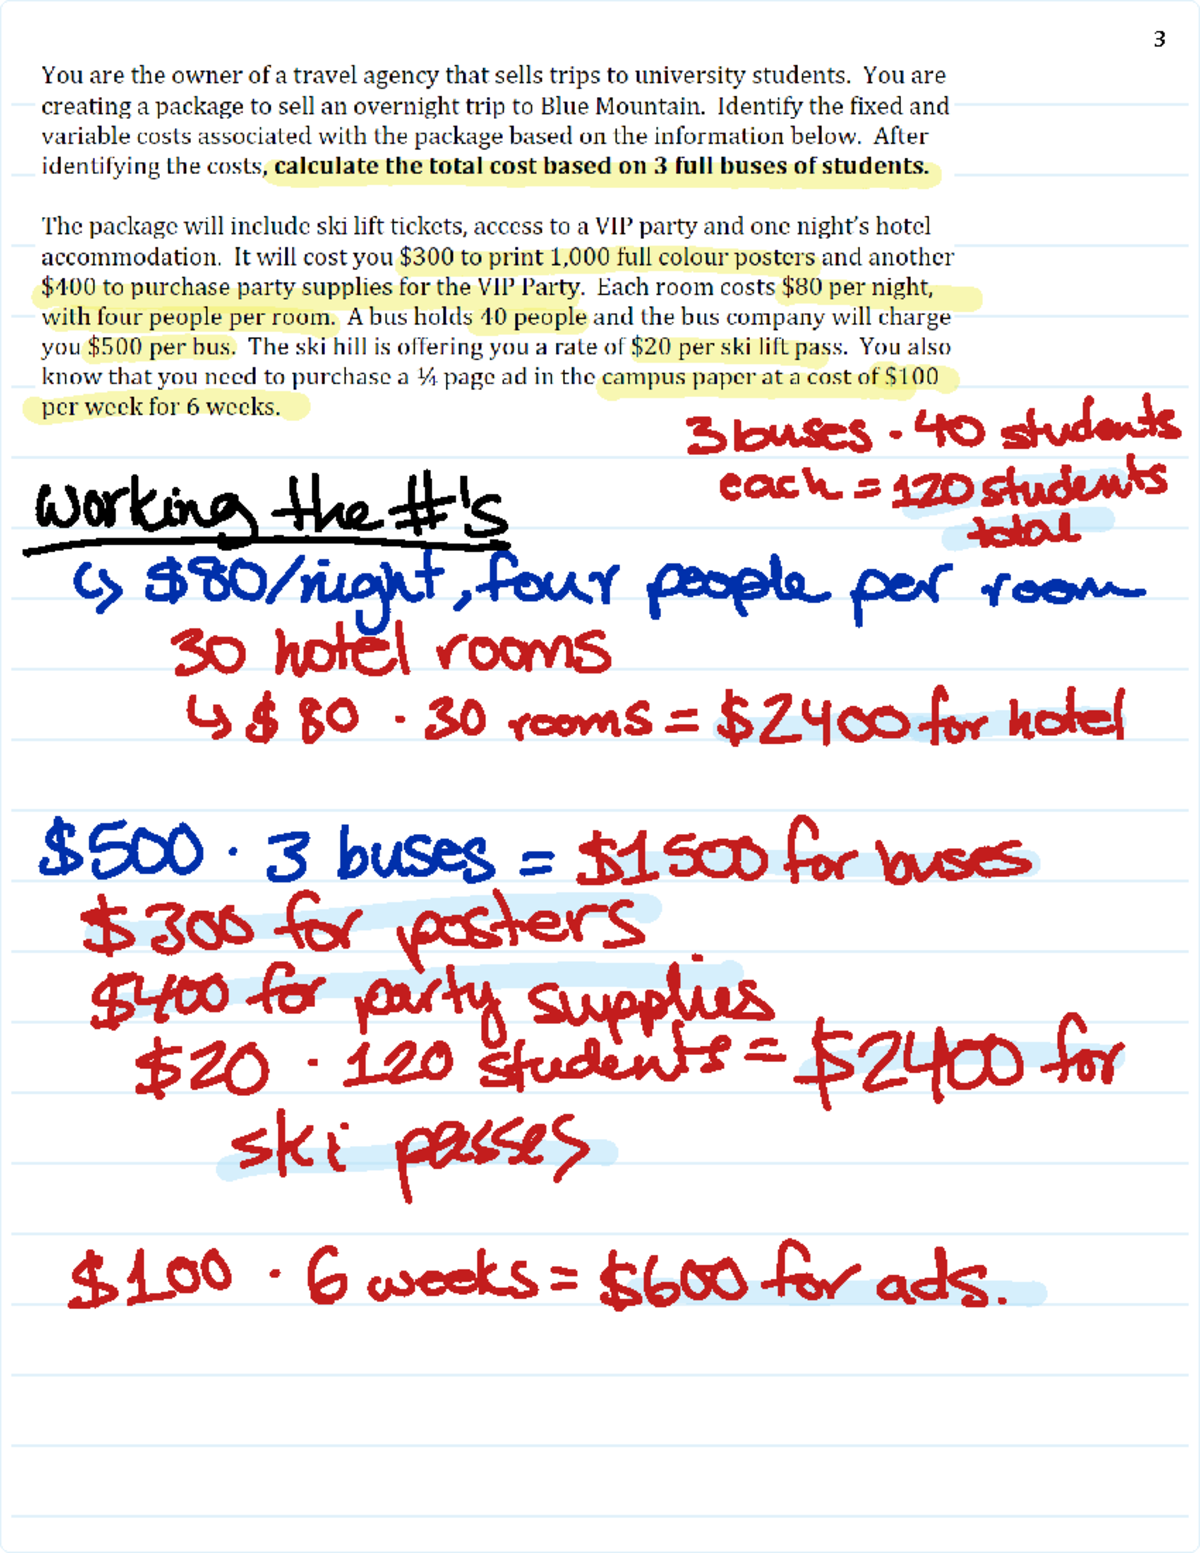 3
You are the owner of a travel agency that sells trips to university students. You are
creating a package to sell an overnight trip to Blue Mountain. Identify the fixed and
variable costs associated with the package based on the information below. After
identifying the costs, calculate the total cost based on 3 full buses of students.
The package will include ski lift tickets, access to a VIP party and one night's hotel
accommodation. It will cost you $300 to print 1,000 full colour posters and another
$400 to purchase party supplies for the VIP Party. Each room costs $80 per night,
with four people per room. A bus holds 40 people and the bus company will charge
you $500 per bus. The ski hill is offering you a rate of $20 per ski lift pass. You also
know that you need to purchase a ¼ page ad in the campus paper at a cost of $100
per week for 6 weeks.
3 buses · 40 students
each = 120 students
total
Working the #'s
↳ $80/night, four people per room
30 hotel rooms
↳ $80 · 30 rooms = $2400 for hotel
$500 · 3 buses = $1500 for buses
$300 for posters
$400 for party supplies
$20 · 120 students = $2400 for
ski passes
$100 · 6 weeks = $600 for ads.